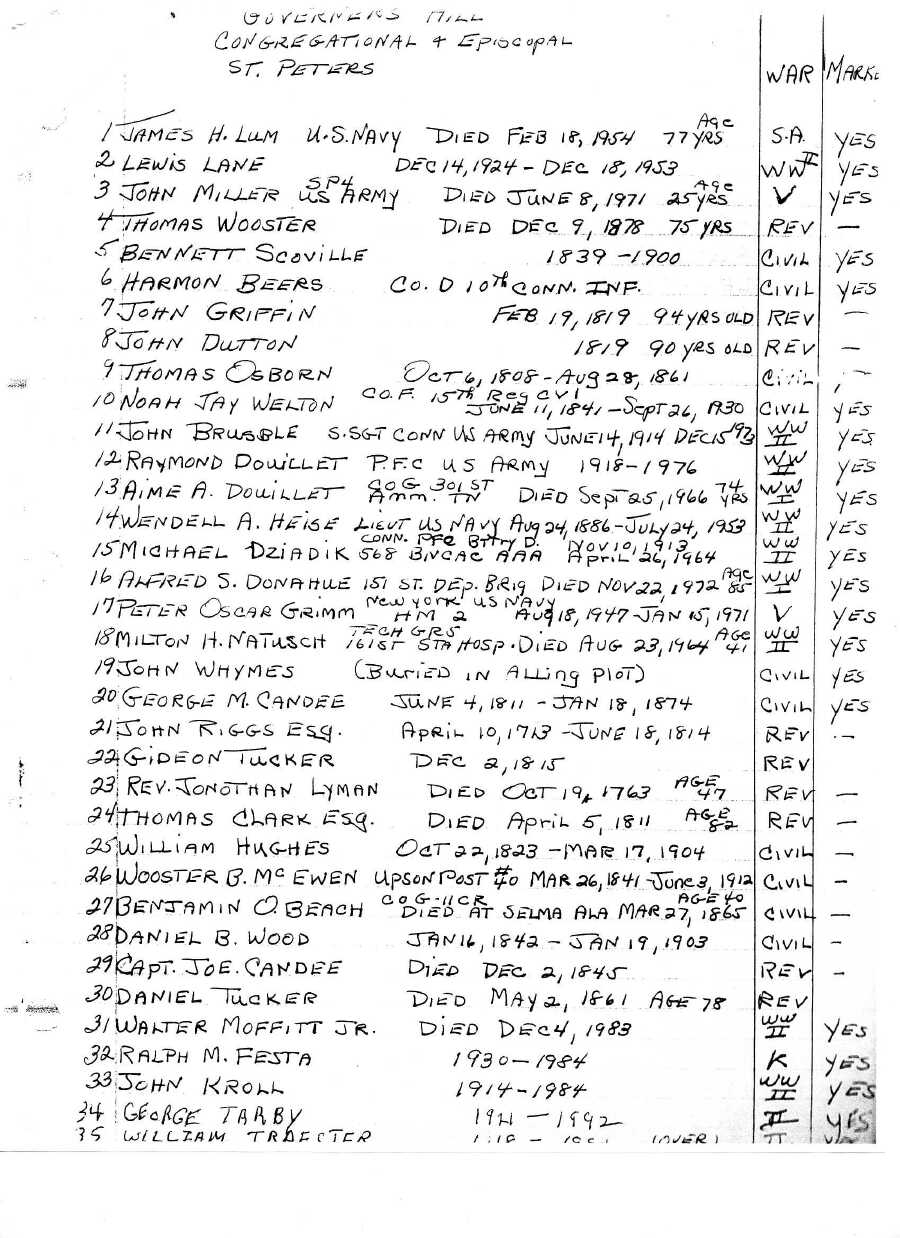 GOVERNERS HILL
CONGREGATIONAL & EPISCOPAL
ST. PETERS
WAR MARKE
1 JAMES H. LUM U.S. NAVY DIED FEB 18, 1954 77 YRS Age S.A. YES
2 LEWIS LANE DEC 14, 1924 - DEC 18, 1953 WW II YES
3 JOHN MILLER SP4 US ARMY DIED JUNE 8, 1971 25 YRS Age V YES
4 THOMAS WOOSTER DIED DEC 9, 1878 75 YRS REV —
5 BENNETT SCOVILLE 1839 - 1900 CIVIL YES
6 HARMON BEERS CO. D 10th CONN. INF. CIVIL YES
7 JOHN GRIFFIN FEB 19, 1819 94 YRS OLD REV —
8 JOHN DUTTON 1819 90 YRS OLD REV —
9 THOMAS OSBORN OCT 6, 1808 - AUG 28, 1861 CIVIL —
10 NOAH JAY WELTON CO. F. 15th Reg CVI JUNE 11, 1841 - Sept 26, 1930 CIVIL YES
11 JOHN BRUSBLE S. SGT CONN US ARMY JUNE 14, 1914 DEC 15 WW II YES
12 RAYMOND DOUILLET P.F.C US ARMY 1918 - 1976 WW II YES
13 AIME A. DOUILLET CO G 301 ST Amm. TN DIED Sept 25, 1966 74 YRS WW I YES
14 WENDELL A. HEISE LIEUT US NAVY Aug 24, 1886 - July 24, 1953 WW II YES
15 MICHAEL DZIADIK CONN. PFC Bttry D. 568 BN CAC AAA NOV 10, 1913 April 26, 1964 WW II YES
16 ALFRED S. DONAHUE 151 ST. DEP. BRIG DIED NOV 22, 1972 Age 85 WW I YES
17 PETER OSCAR GRIMM NEW YORK US NAVY HM 2 AUG 18, 1947 - JAN 15, 1971 V YES
18 MILTON H. NATUSCH TECH GR5 161ST STA HOSP. DIED AUG 23, 1964 AGE 41 WW II YES
19 JOHN WHYMES (BURIED IN ALLing PLOT) CIVIL YES
20 GEORGE M. CANDEE JUNE 4, 1811 - JAN 18, 1874 CIVIL YES
21 JOHN RIGGS ESq. APRIL 10, 1713 - JUNE 18, 1814 REV —
22 GIDEON TUCKER DEC 2, 1815 REV
23 REV. JONOTHAN LYMAN DIED OCT 19, 1763 AGE 47 REV —
24 THOMAS CLARK ESq. DIED April 5, 1811 AGE 82 REV —
25 WILLIAM HUGHES OCT 22, 1823 - MAR 17, 1904 CIVIL —
26 WOOSTER B. McEWEN UPSON POST #40 MAR 26, 1841 - June 3, 1912 CIVIL —
27 BENJAMIN O. BEACH CO G - 11 CR DIED AT SELMA ALA MAR 27, 1865 AGE 40 CIVIL —
28 DANIEL B. WOOD JAN 16, 1842 - JAN 19, 1903 CIVIL -
29 CAPT. JOE. CANDEE DIED DEC 2, 1845 REV -
30 DANIEL TUCKER DIED MAY 2, 1861 AGE 78 REV
31 WALTER MOFFITT JR. DIED DEC 4, 1983 WW II YES
32 RALPH M. FESTA 1930 - 1984 K YES
33 JOHN KROLL 1914 - 1984 WW II YES
34 GEORGE TARBY - 1992 II YES
35 WILLIAM (OVER) II